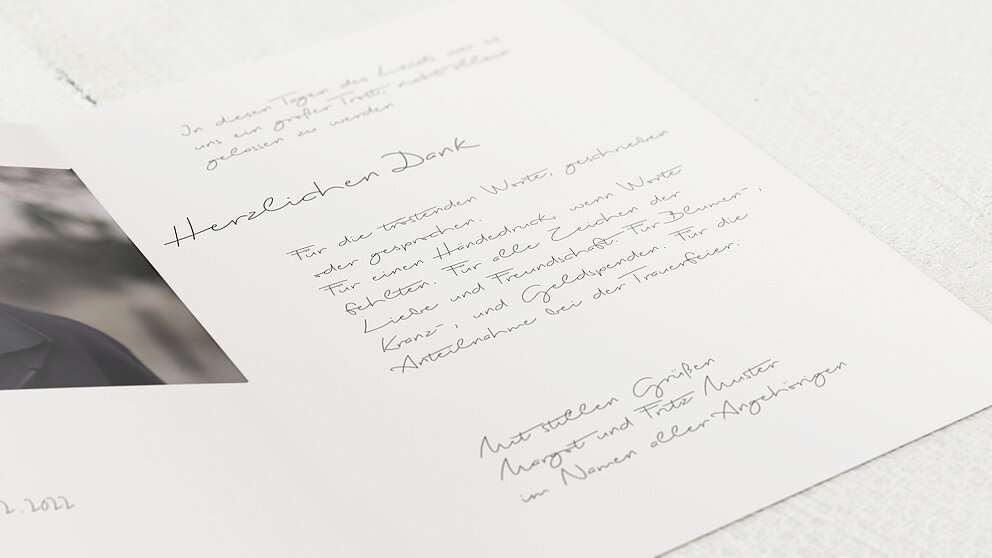 In diesen Tagen des Leids war es
uns ein großer Trost, nicht allein
gelassen zu werden.
Herzlichen Dank
Für die tröstenden Worte, geschrieben
oder gesprochen.
Für einen Händedruck, wenn Worte
fehlten. Für alle Zeichen der
Liebe und Freundschaft. Für Blumen-,
Kranz-, und Geldspenden. Für die
Anteilnahme bei der Trauerfeier.
Mit stillen Grüßen
Margot und Fritz Muster
im Namen aller Angehörigen
2.2022